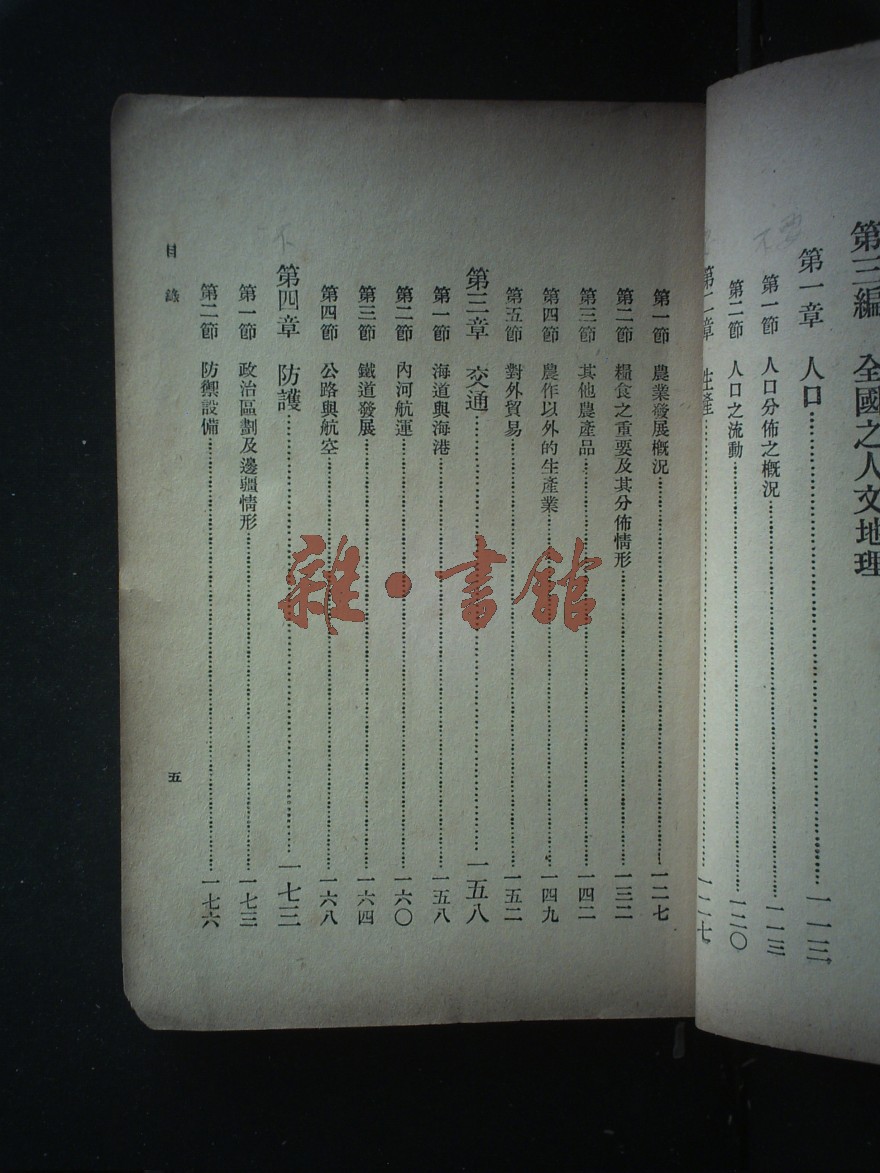 第三編　全國之人文地理
第一章　人口……一一三
第一節　人口分佈之概況……一一三
第二節　人口之流動……一二〇
第二章　生產……一二七
第一節　農業發展概況……一二七
第二節　糧食之重要及其分佈情形……一三二
第三節　其他農產品……一四二
第四節　農作以外的生產業……一四九
第五節　對外貿易……一五二
第三章　交通……一五八
第一節　海道與海港……一五八
第二節　內河航運……一六〇
第三節　鐵道發展……一六四
第四節　公路與航空……一六八
第四章　防護……一七三
第一節　政治區劃及邊疆情形……一七三
第二節　防禦設備……一七六
目錄
五
雜·書館